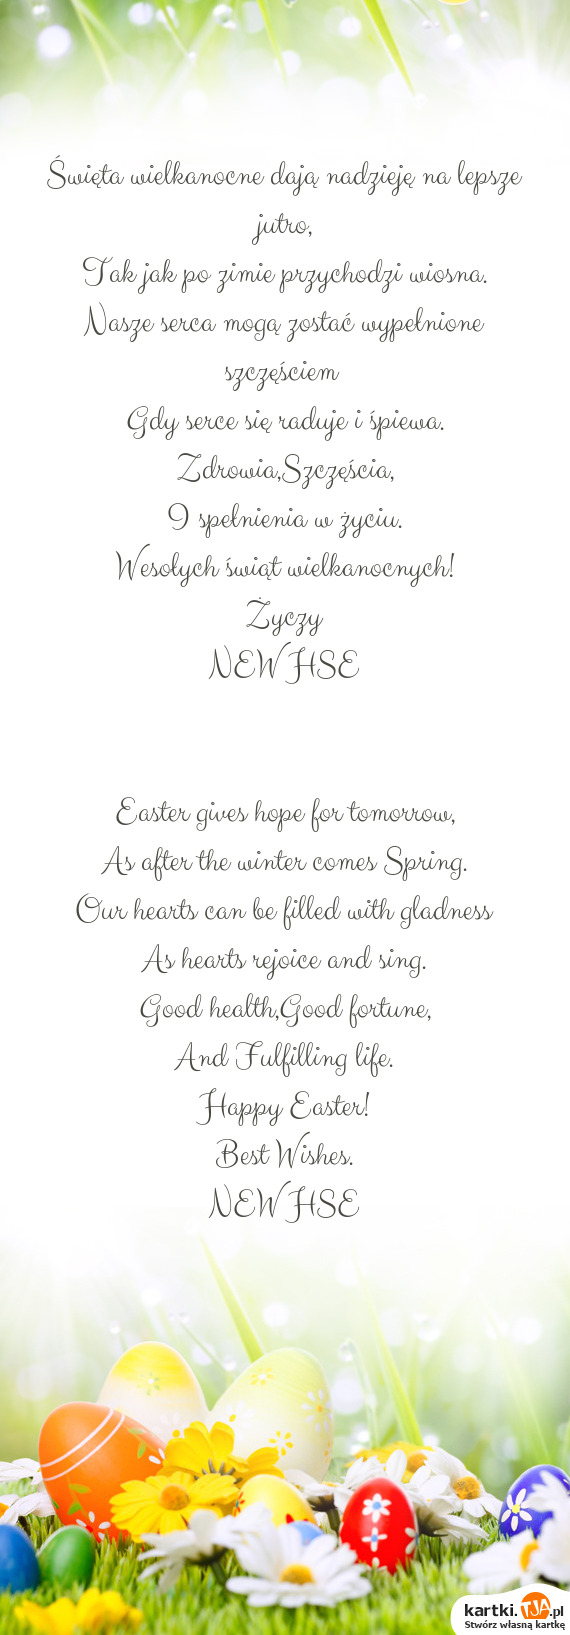 Święta wielkanocne dają nadzieję na lepsze
jutro,
Tak jak po zimie przychodzi wiosna.
Nasze serca mogą zostać wypełnione
szczęściem
Gdy serce się raduje i śpiewa.
Zdrowia,Szczęścia,
I spełnienia w życiu.
Wesołych świąt wielkanocnych!
Życzy
NEW HSE
Easter gives hope for tomorrow,
As after the winter comes Spring.
Our hearts can be filled with gladness
As hearts rejoice and sing.
Good health,Good fortune,
And Fulfilling life.
Happy Easter!
Best Wishes.
NEW HSE
kartki.TJA.pl
Stwórz własną kartkę